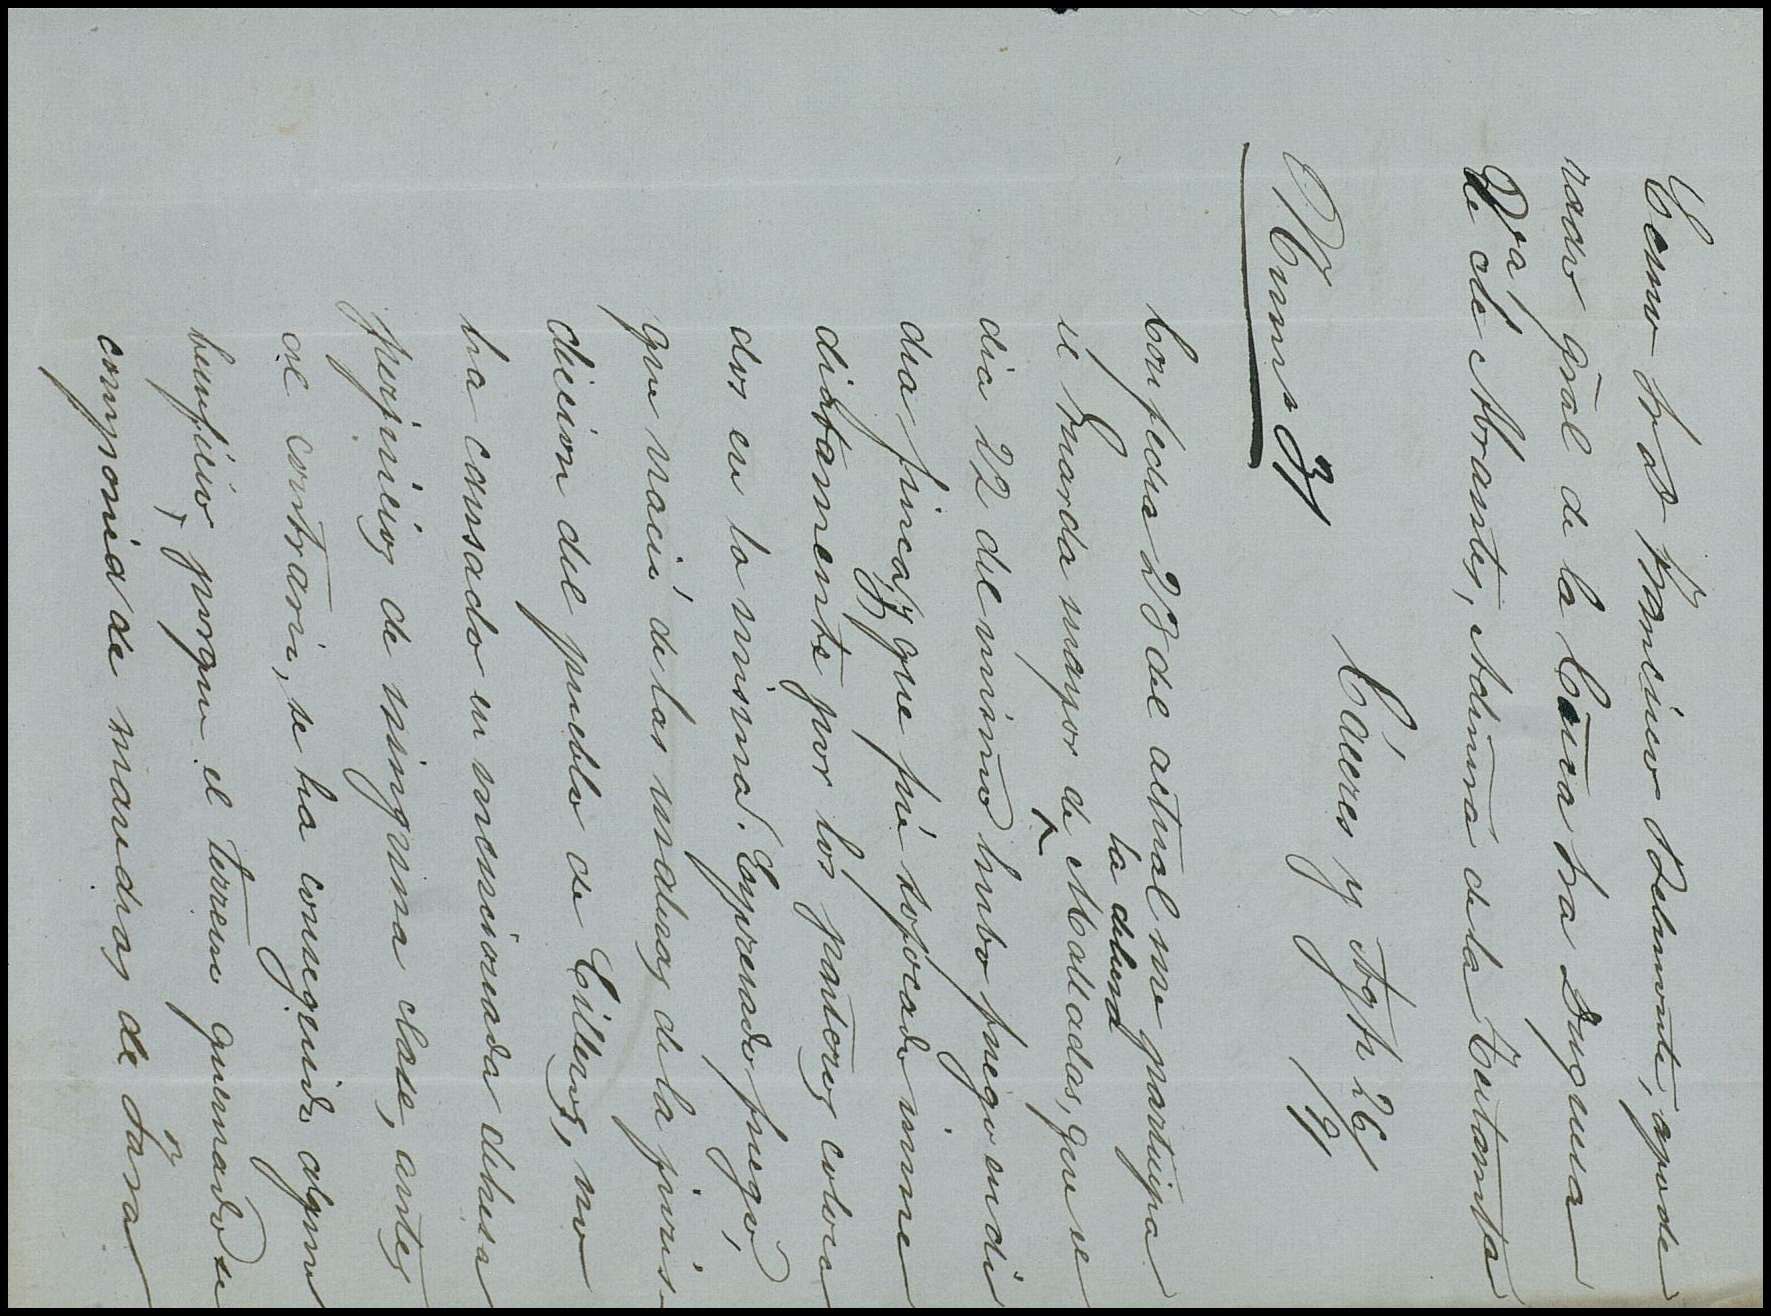 Excmo Sr D Francisco Belmonte, apode
rado gral de la Casa Sra Duquesa
Vda de Abrantes, Admora de la Testamta
Cáceres y Agto 26/9
Num. 37
Con fecha 23 del actual me participa
el Guarda mayor de la dehesa Malladas, que el
dia 22 del mismo hubo fuego en di
cha finca, y que fué sofocado inme
diatamente por los pastores coloca
dos en la misma. Expresado fuego,
que nació de las maduras de la juris-
diccion del pueblo de Cilleros, no
ha causado en mencionada dehesa
perjuicios de ninguna clase, antes
al contrario, se ha conseguido algun
beneficio, porque el terreno quemado se
componia de manchas de Jara